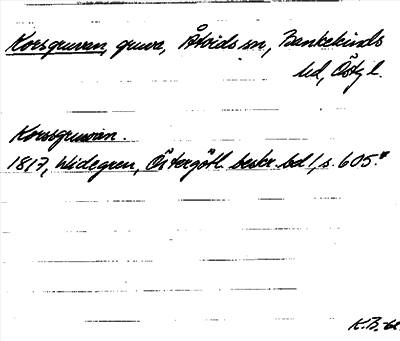 Korsgruvan, gruva, Åtvids sn, Bankekinds
hd, Östgl.
Korsgruvan.
1817, Widegren, Östergötl. beskr. bd 1, s. 605."
K.B.